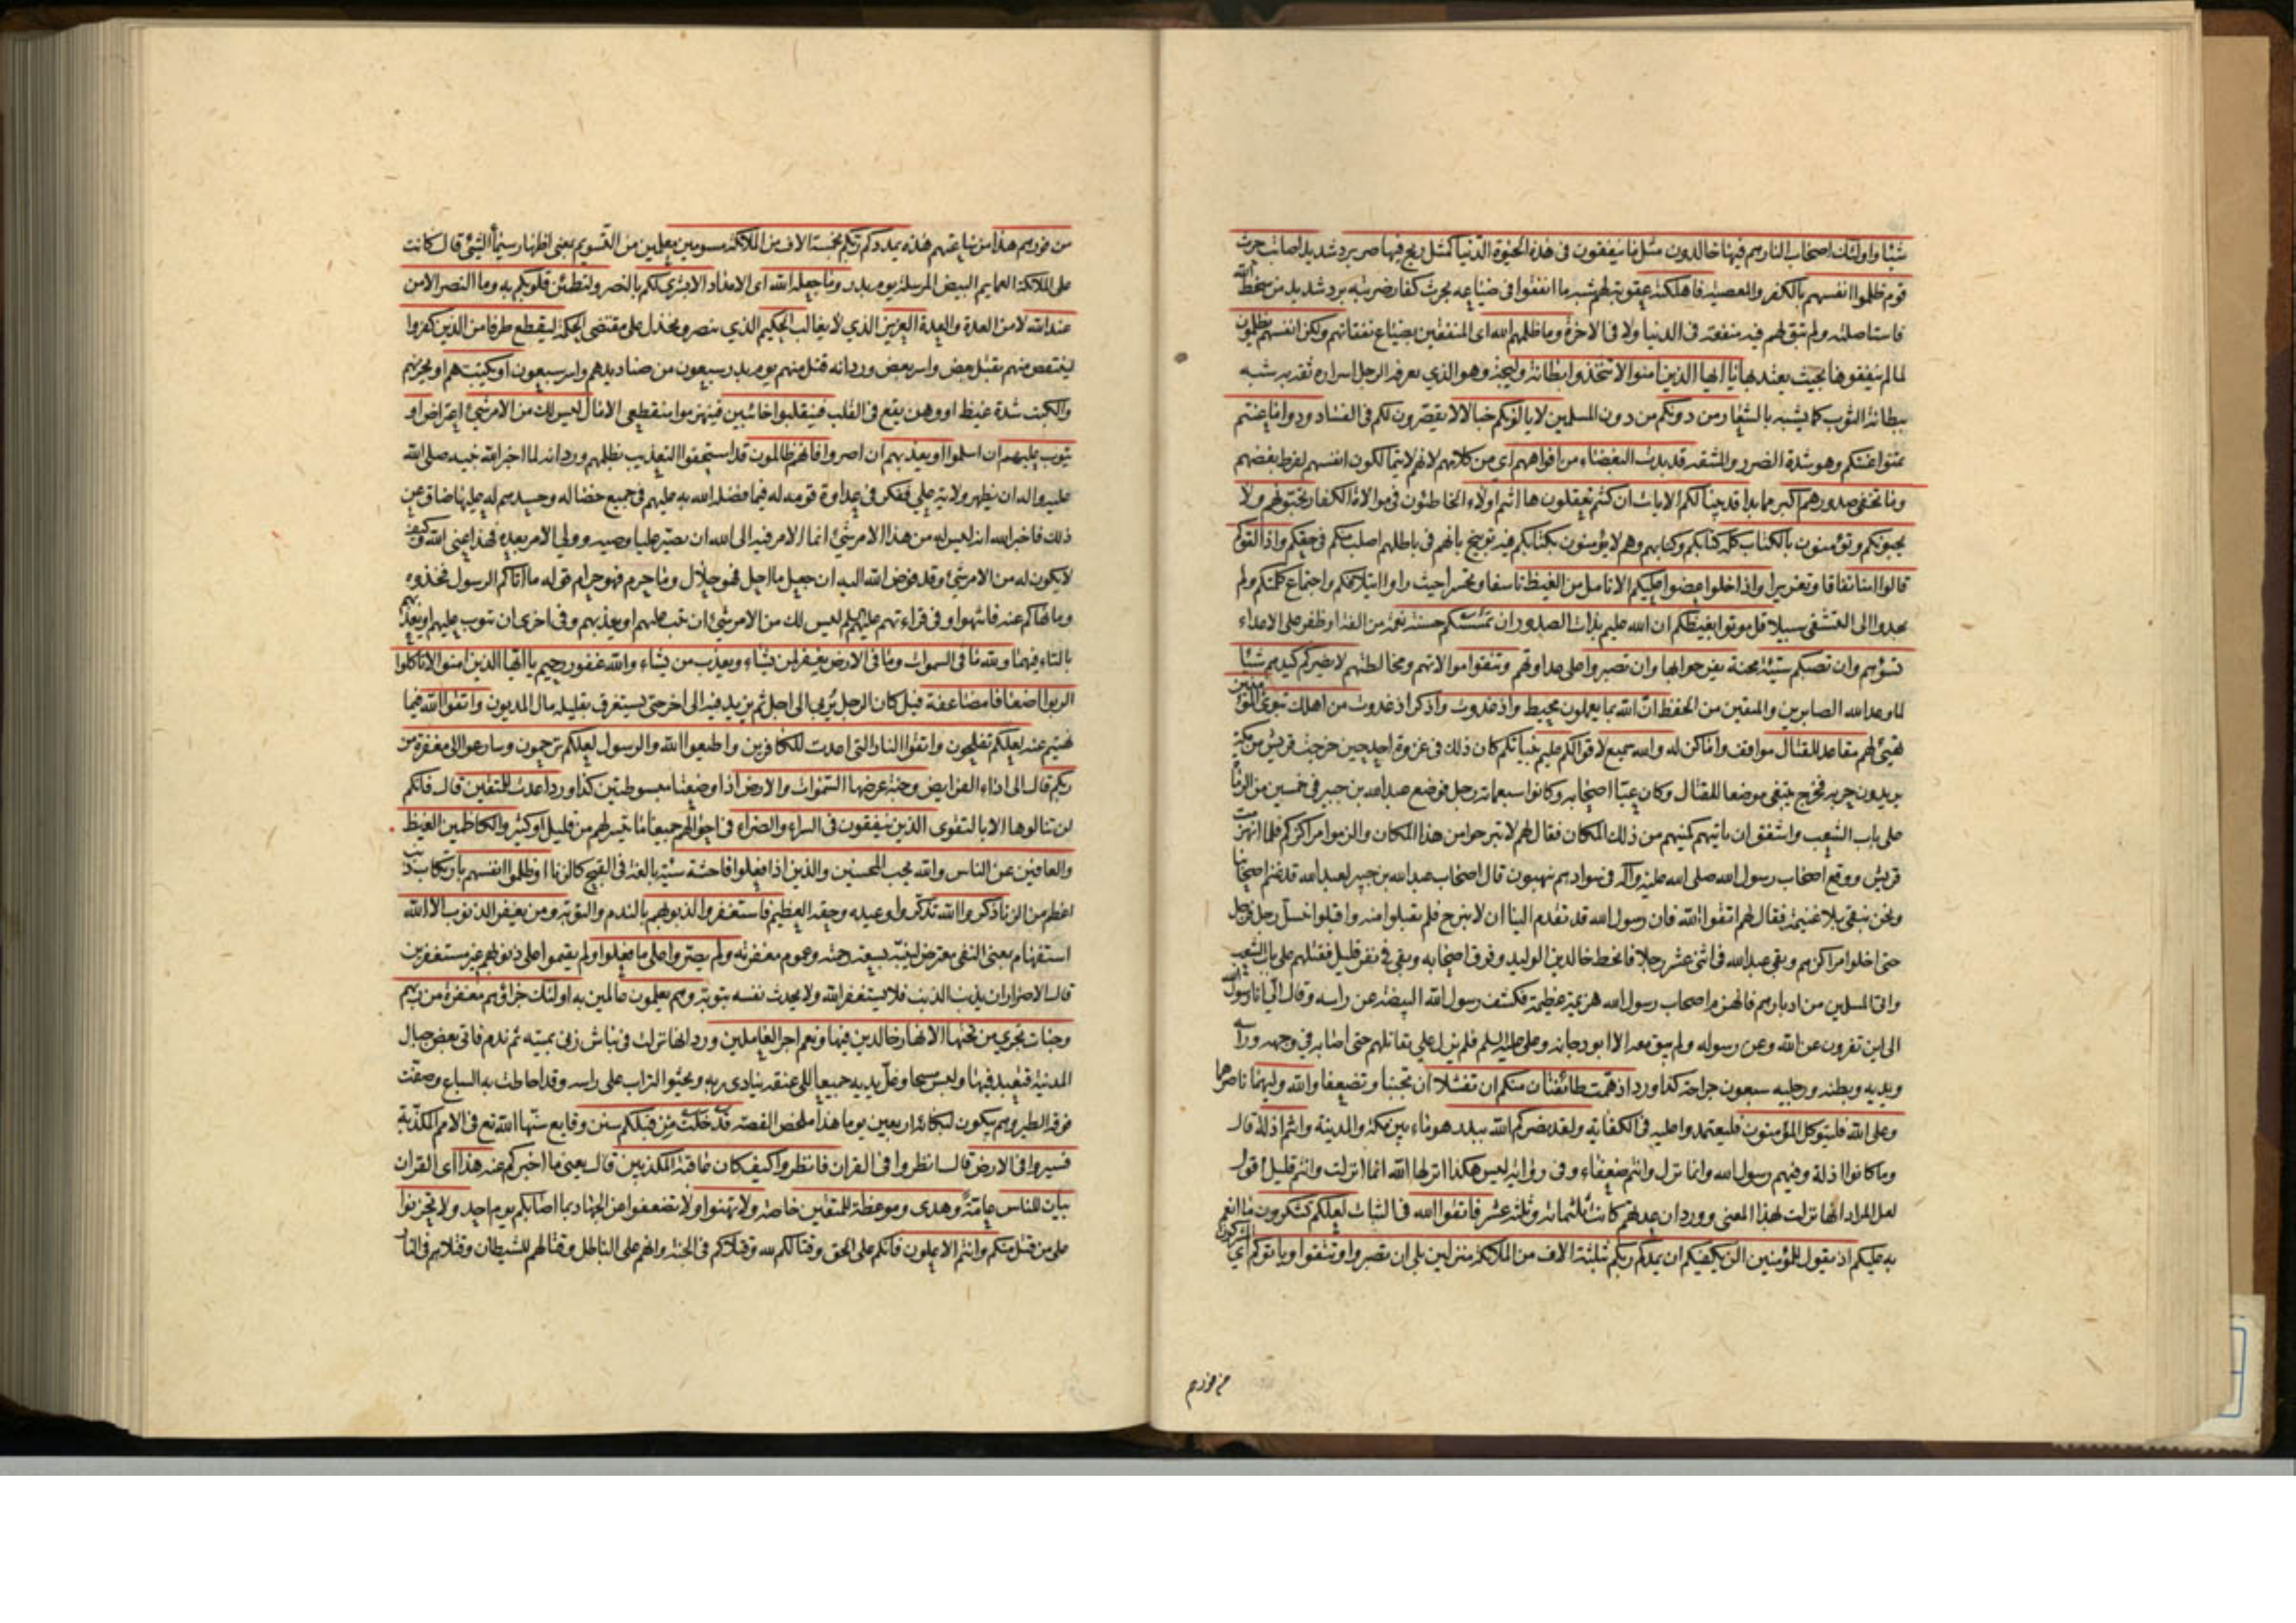 شيئا واولئك اصحاب النار هم فيها خالدون مثل ما ينفقون في هذه الحيوة الدنيا كمثل ريح فيها صر برد شديد اصابت حرث
قوم ظلموا انفسهم بالكفر والمعصية فاهلكته عقوبة لهم شبه ما انفقوا في ضياعه بحرث كفار ضربته برد شديد من سخط الله
فاستاصلته ولم تبق لهم فيه منفعة في الدنيا ولا في الاخرة وما ظلمهم الله اى المنفقين بضياع نفقاتهم ولكن انفسهم يظلمون
لما لم ينفقوها بحيث يعتد بها يا ايها الذين امنوا لا تتخذوا بطانة وليجة وهو الذي يعرفه الرجل اسراره ثقة به شبه
ببطانة الثوب كما يشبه بالشعار من دونكم من دون المسلمين لا يالونكم خبالا لا يقصرون لكم في الفساد ودوا ما عنتم
تمنوا عنتكم وهو شدة الضرر والمشقة قد بدت البغضاء من افواههم اي من كلامهم لانهم لا يتمالكون انفسهم لفرط بغضهم
وما تخفي صدورهم اكبر مما بدا قد بينا لكم الايات ان كنتم تعقلون ها انتم اولاء الخاطئون في موالاة الكفار تحبونهم ولا
يحبونكم وتؤمنون بالكتاب كله كتابكم وكتابهم وهم لا يؤمنون بكتابكم فيه توبيخ بانهم في باطلهم اصلب منكم في حقكم واذا لقوكم
قالوا امنا نفاقا وتغريرا واذا خلوا عضوا عليكم الانامل من الغيظ تاسفا وتحسرا حيث راوا ايتلافكم واجتماع كلمتكم ولم
يجدوا الى التشفي سبيلا قل موتوا بغيظكم ان الله عليم بذات الصدور ان تمسسكم حسنة نعمة من الفة او ظفر على الاعداء
تسؤهم وان تصبكم سيئة محنة يفرحوا بها وان تصبروا على عداوتهم وتتقوا موالاتهم ومخالطتهم لا يضركم كيدهم شيئا
لما وعد الله الصابرين والمتقين من الحفظ ان الله بما يعملون محيط واذ غدوت واذكر اذ غدوت من اهلك تبوئ المؤمنين
تهيئ لهم مقاعد للقتال مواقف واماكن له والله سميع لاقوالكم عليم بنياتكم كان ذلك في غزوة احد حين خرجت قريش من مكة
يريدون حربه فخرج يبتغي موضعا للقتال وكان عبا اصحابه وكانوا سبعمائة رجل فوضع عبد الله بن جبير في خمسين من الرماة
على باب الشعب واشفق ان ياتيهم كمينهم من ذلك المكان فقال لهم لا تبرحوا من هذا المكان والزموا مراكزكم فلما انهزمت
قريش ووقع اصحاب رسول الله صلى الله عليه وآله في سوادهم ينهبون قال اصحاب عبد الله بن جبير لعبد الله قد غنم اصحابنا
ونحن نبقى بلا غنيمة فقال لهم اتقوا الله فان رسول الله قد تقدم الينا ان لا نبرح فلم يقبلوا منه واقبلوا ينسل رجل فرجل
حتى اخلوا مراكزهم وبقي عبد الله في اثنى عشر رجلا فانحط خالد بن الوليد وفرق اصحابه وبقي في نفر قليل فقتلهم على باب الشعب
واتى المسلمين من ادبارهم فانهزم اصحاب رسول الله هزيمة عظيمة فكشف رسول الله البيضة عن راسه وقال الي انا رسول الله
الى اين تفرون عن الله وعن رسوله ولم يبق معه الا ابو دجانة وعلي عليه السلم فلم يزل علي يقاتلهم حتى اصابه في وجهه وراسه
ويديه وبطنه ورجليه سبعون جراحة كذا ورد اذ همت طائفتان منكم ان تفشلا ان تجبنا وتضعفا والله وليهما ناصرهما
وعلى الله فليتوكل المؤمنون فليعتمدوا عليه في الكفاية ولقد نصركم الله ببدر هو ماء بين مكة والمدينة وانتم اذلة قال
وما كانوا اذلة وفيهم رسول الله وانما نزل وانتم ضعفاء وفي رواية ليس هكذا انزلها الله انما انزلت وانتم قليل اقول
لعل المراد انها نزلت بهذا المعنى وورد ان عدتهم كانت ثلثمائة وثلثة عشر فاتقوا الله في الثبات لعلكم تشكرون ما انعم
به عليكم اذ تقول للمؤمنين الن يكفيكم ان يمدكم ربكم بثلثة الاف من الملائكة منزلين بلى ان تصبروا وتتقوا وياتوكم اي المشركون
من فورهم
من فورهم هذا من ساعتهم هذه يمددكم ربكم بخمسة الاف من الملائكة مسومين معلمين من التسويم بمعنى اظهار سيماء الشئ قال كانت
على الملائكة العمايم البيض المرسلة يوم بدر وما جعله الله اى الامداد الا بشرى لكم بالنصر ولتطمئن قلوبكم به وما النصر الا من
عند الله لا من العدة والعدة العزيز الذي لا يغالب الحكيم الذي ينصر ويخذل على مقتضى الحكمة ليقطع طرفا من الذين كفروا
لينتقص منهم بقتل بعض واسر بعض ورد انه قتل منهم يوم بدر سبعون من صناديدهم واسر سبعون او يكبتهم او يخزيهم
والكبت شدة غيظ او وهن يقع في القلب فينقلبوا خائبين فينهزموا منقطعي الامال ليس لك من الامر شئ اعتراض او
يتوب عليهم ان اسلموا او يعذبهم ان اصروا فانهم ظالمون قد استحقوا التعذيب بظلمهم ورد انه لما اخبر الله نبيه صلى الله
عليه واله ان يظهر ولاية علي ففكر في عداوة قومه له فيما فضله الله به عليهم في جميع خصاله وحسدهم له عليها ضاق عن
ذلك فاخبر الله انه ليس له من هذا الامر شئ انما الامر فيه الى الله ان يصير عليا وصيه وولي الامر بعده فهذا عنى الله وكيف
لا يكون له من الامر شئ وقد فوض الله اليه ان جعل ما احل فهو حلال وما حرم فهو حرام قوله ما اتاكم الرسول فخذوه
وما نهاكم عنه فانتهوا وفي قراءتهم عليهم السلم ليس لك من الامر شئ ان تب عليهم او يعذبهم وفي اخرى ان تتوب عليهم او تعذبهم
بالتاء فيهما ولله ما في السموات وما في الارض يغفر لمن يشاء ويعذب من يشاء والله غفور رحيم يا ايها الذين امنوا لا تاكلوا
الربوا اضعافا مضاعفة قيل كان الرجل يربي الى اجل ثم يزيد فيه الى اخر حتى يستغرق بقليله مال المديون واتقوا الله فيما
نهيتم عنه لعلكم تفلحون واتقوا النار التي اعدت للكافرين واطيعوا الله والرسول لعلكم ترحمون وسارعوا الى مغفرة من
ربكم قال الى اداء الفرايض وجنة عرضها السموات والارض اذا وضعتا مبسوطتين كذا ورد اعدت للمتقين قال فانكم
لن تنالوها الا بالتقوى الذين ينفقون في السراء والضراء في احوالهم جميعا ما تيسر لهم من قليل او كثير والكاظمين الغيظ
والعافين عن الناس والله يحب المحسنين والذين اذا فعلوا فاحشة سيئة بالغة في القبح كالزنا او ظلموا انفسهم بارتكاب ذنب
اعظم من الزنا ذكروا الله تذكروا وعيده وحقه العظيم فاستغفروا لذنوبهم بالندم والتوبة ومن يغفر الذنوب الا الله
استفهام بمعنى النفي معترض لبيان سعة رحمته وعموم مغفرته ولم يصروا على ما فعلوا ولم يقيموا على ذنوبهم غير مستغفرين
قال الاصرار ان يذنب الذنب فلا يستغفر الله ولا يحدث نفسه بتوبة وهم يعلمون عالمين به اولئك جزاؤهم مغفرة من ربهم
وجنات تجري من تحتها الانهار خالدين فيها ونعم اجر العاملين ورد انها نزلت في نباش زنى بميتة ثم ندم فاتى بعض جبال
المدينة فتعبد فيها ولبس مسحا وغل يديه جميعا الى عنقه ينادى ربه ويحثوا التراب على راسه وقد احاطت به السباع وصفت
فوقه الطير وهم يبكون لبكائه اربعين يوما هذا ملخص القصة قد خلت من قبلكم سنن وقايع سنها الله تع في الامم المكذبة
فسيروا في الارض قال انظروا في القران فانظروا كيف كان عاقبة المكذبين قال يعني ما اخبركم عنه هذا اى القران
بيان للناس عامة وهدى وموعظة للمتقين خاصة ولا تهنوا ولا تضعفوا عن الجهاد بما اصابكم يوم احد ولا تحزنوا
على من قتل منكم وانتم الاعلون فانكم على الحق وقتالكم لله وقتلاكم في الجنة وانهم على الباطل وقتالهم للشيطان وقتلاهم في النار